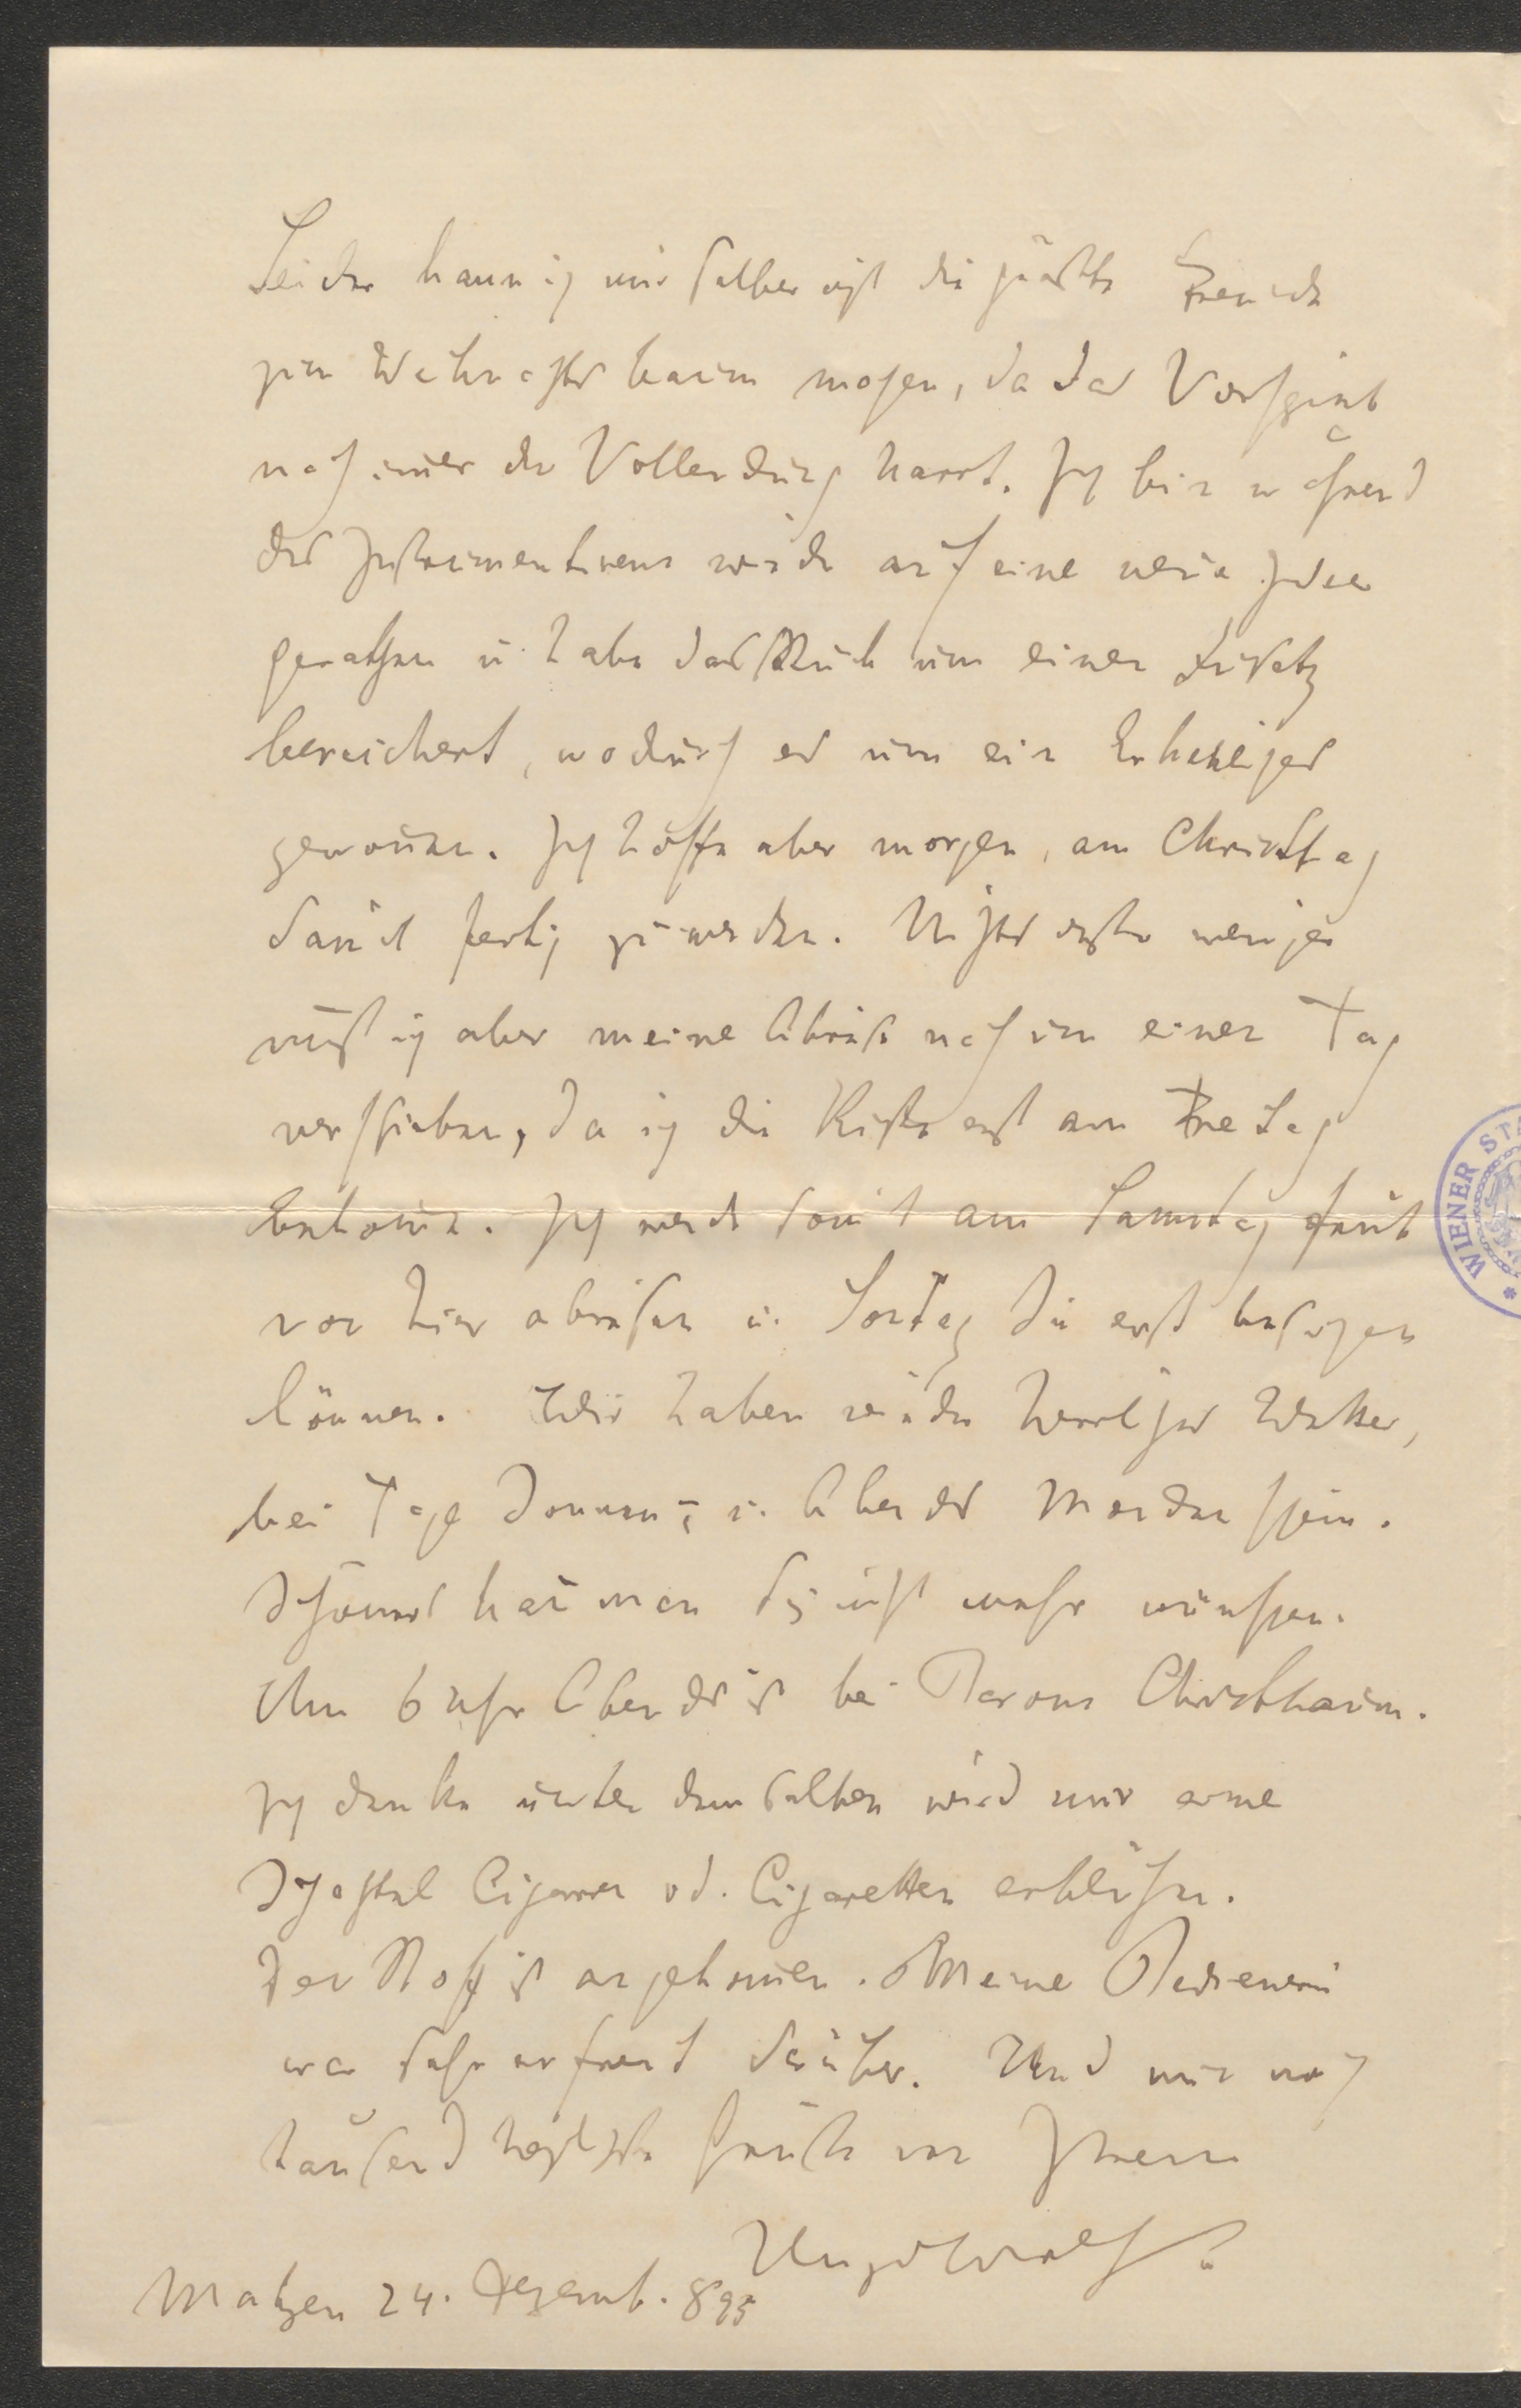 Leider kann ich mir selber nicht die größte Freude
zum Weihnachtsbaum machen, da das Vorspiel
noch immer der Vollendung harrt. Ich bin während
des Instrumentirens wieder auf eine neue Idee
gerathen u. habe das Stück um einen Zusatz
bereichert, wodurch es um ein Erkleckliches
gewonnen. Ich hoffe aber morgen, am Christtag
damit fertig zu werden. Nichts desto weniger
muß ich aber meine Abreise noch um einen Tag
verschieben, da ich die Kiste erst am Freitag
bekomme. Ich werde somit am Samstag früh
von hier abreisen u. Sontag Sie erst besuchen
können. Wir haben wieder herrliches Wetter,
bei Tage Sonnen- u. Abends Mondenschein.
Schöneres kann man sich nicht mehr wünschen.
Um 6 Uhr Abends ist bei Barons Christbaum.
Ich denke unter demselben wird mir eine
Schachtel Cigarren od. Cigaretten erblühen.
Der Stoff ist angekommen. Meine Bedienerin
war sehr erfreut darüber. Und nun noch
tausend herzliche Grüße von Ihrem
Hugo Wolf
Matzen 24. Dezemb. 895
WIENER STA